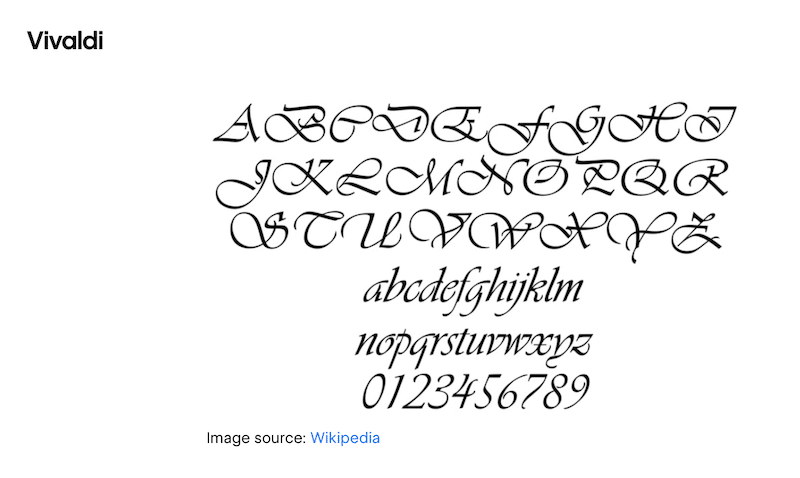 Vivaldi
ABCDEFGHI
JKLMNOPQR
STUVWXYZ
abcdefghijklm
nopqrstuvwxyz
0123456789
Image source: Wikipedia